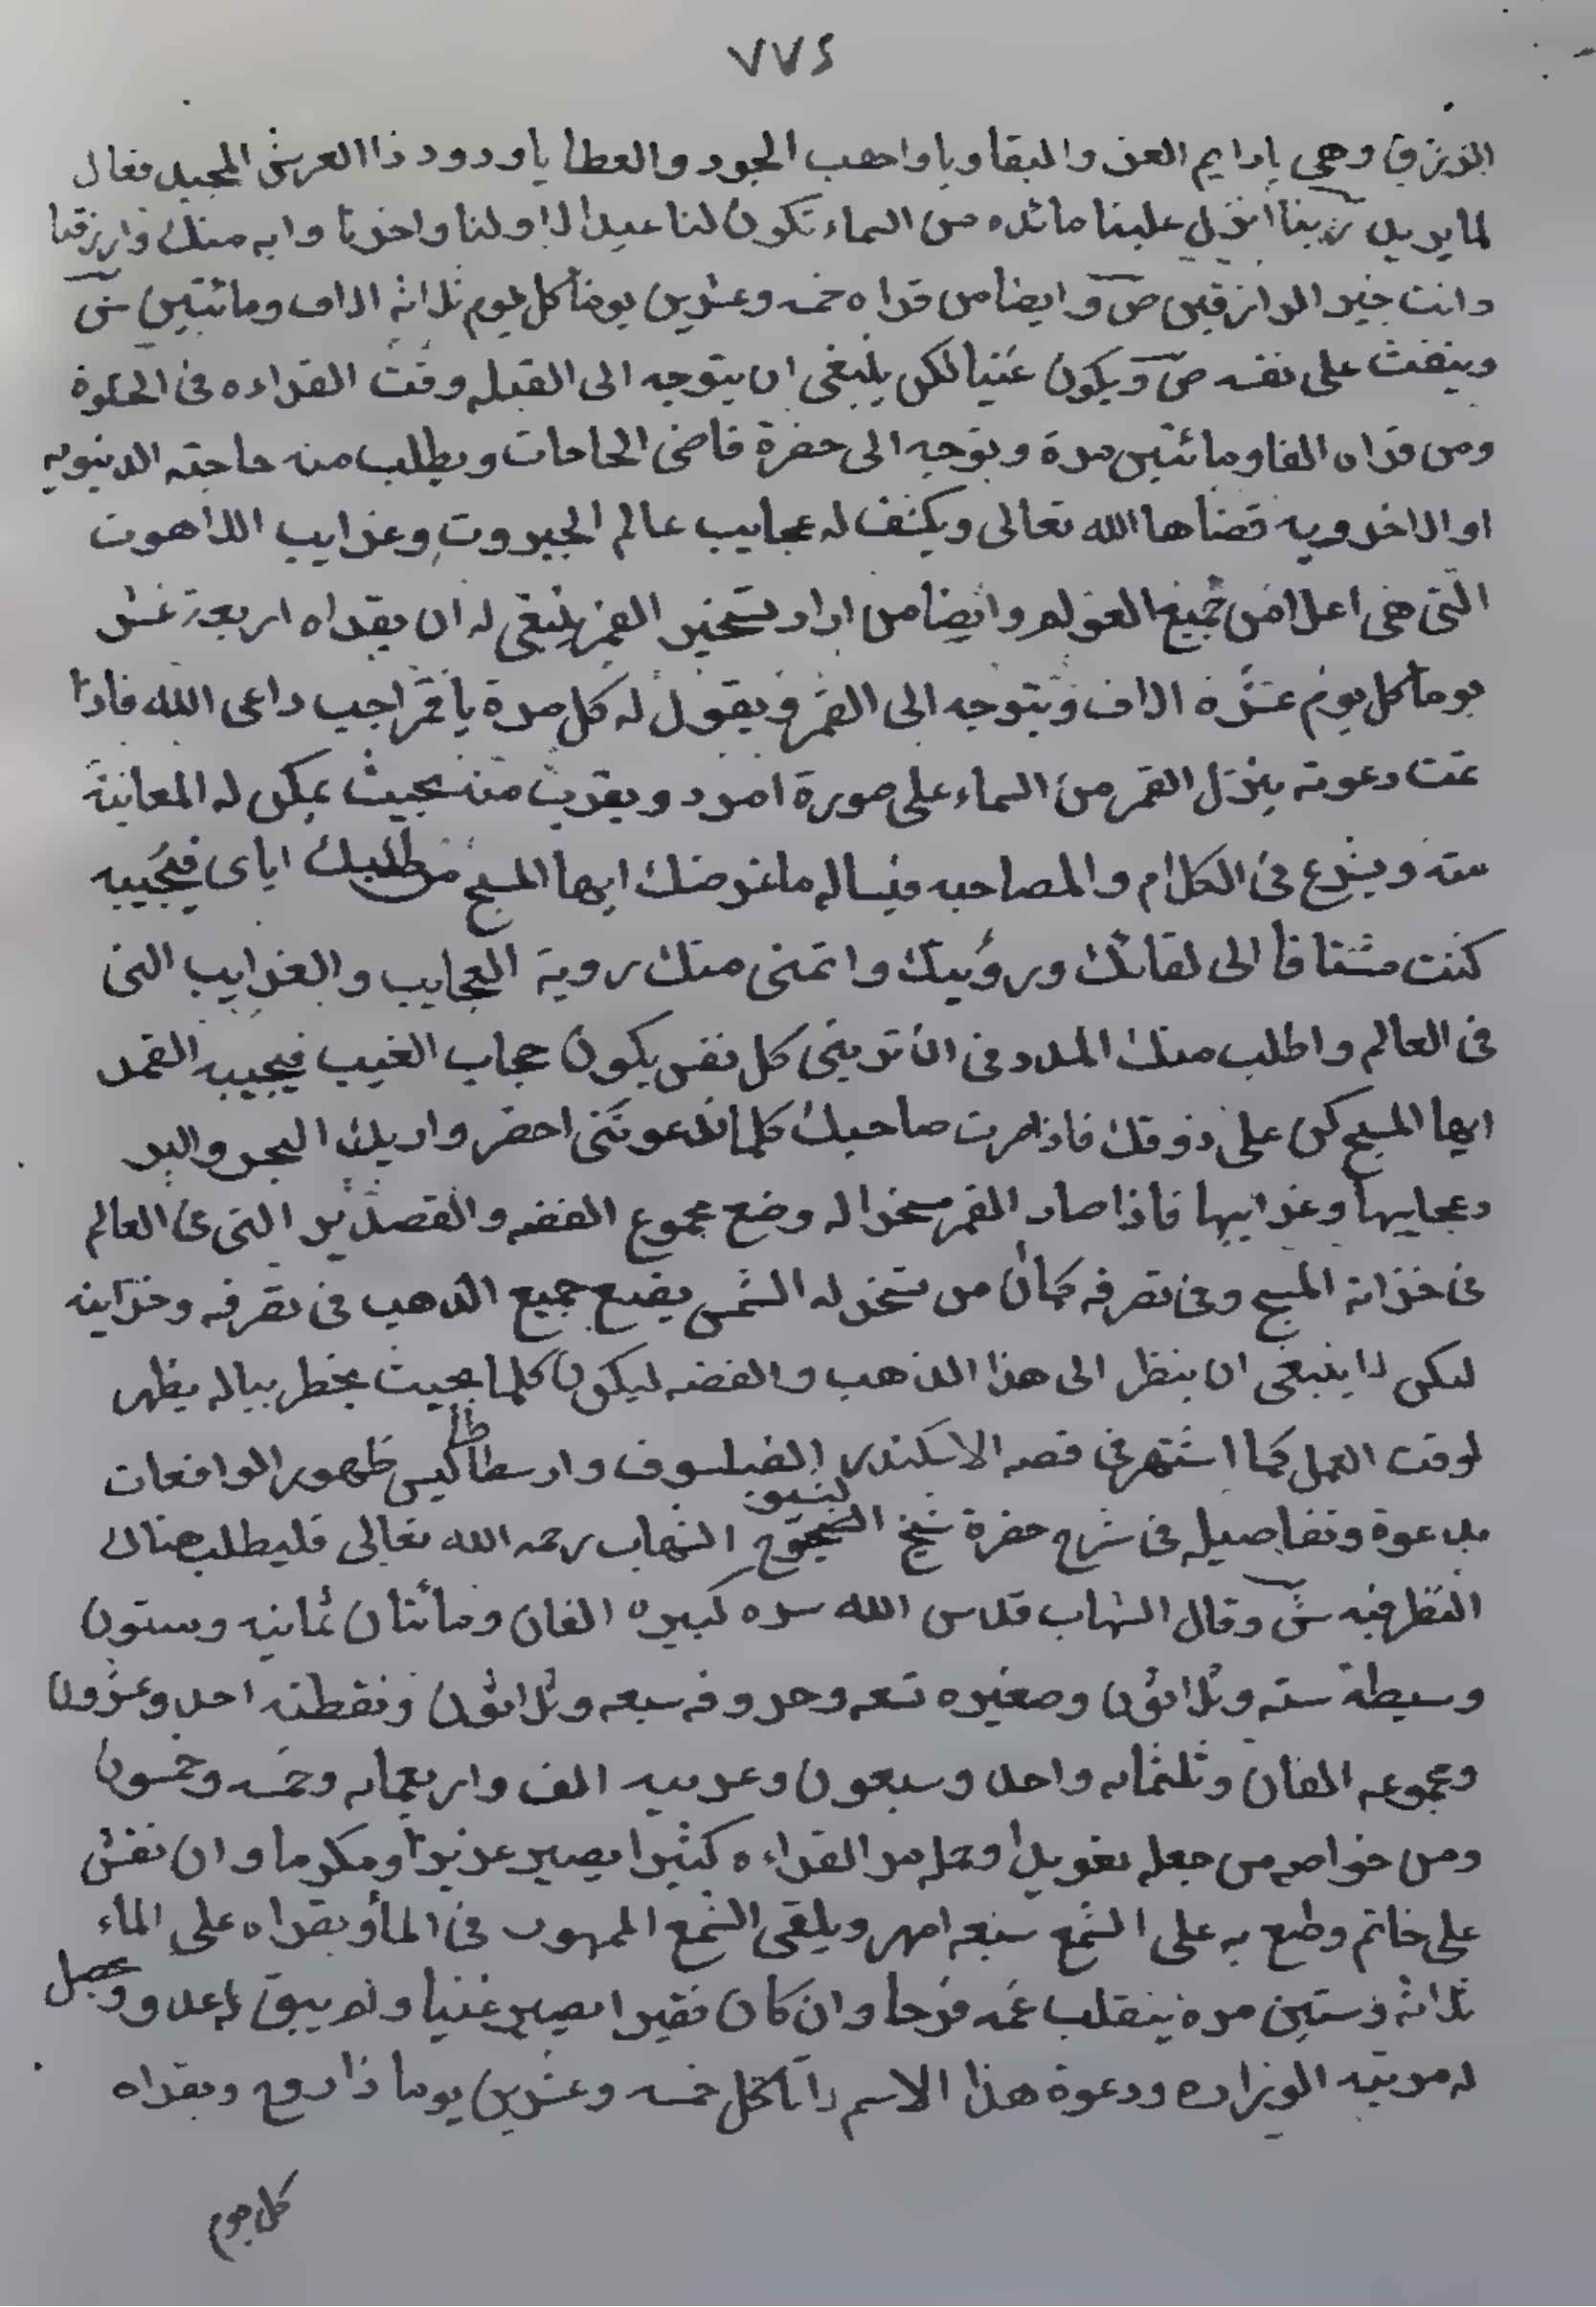 ٧٧٤
الرزق وهى يادايم العز والبقا ويا واهب الجود والعطا يا ودود ذا العرش المجيد فعال
لما يريد ربنا انزل علينا مائده من السماء تكون لنا عيدا لاولنا واخرنا وايه منك وارزقنا
وانت خير الرازقين ص وايضا من قراه خمسه وعشرين يوما كل يوم ثلاثة الاف ومائتين ش
وينفث على نفسه ص ويكون غنيا لكن ينبغى ان يتوجه الى القبله وقت القراءه فى الخلوة
ومن قراه الفا ومائتين مرة وتوجه الى حضرة قاضى الحاجات ويطلب منه حاجته الدنيويه
او الاخرويه قضاها الله تعالى ويكشف له عجايب عالم الجبروت وغرايب اللاهوت
التى هى اعلا من جميع العولم وايضا من اراد تسخير القمر ينبغى له ان يقراه اربعة عشر
يوما كل يوم عشرة الاف ويتوجه الى القمر ويقول له كل مرة يا قمر اجب داعى الله فاذا
تمت دعوته ينزل القمر من السماء على صورة امرد ويقرب منه بحيث يمكن له المعاينة
منه ويشرع فى الكلام والمصاحبه فيساله ما غرضك ايها المسبح من طلبك اياى فيجيبه
كنت مشتاقا الى لقائك ورؤيتك واتمنى منك روية العجايب والغرايب التى
فى العالم واطلب منك المدد فى ان ترينى كل نفس يكون حجاب الغيب فيجيبه القمر
ايها المسبح كن على ذوقك فاذا صرت صاحبك كلما تدعوتنى احضر واريك البحر والبر
وعجايبها وغرايبها فاذا صار القمر مسخرا له وضع مجموع الفضه والقصدير التى فى العالم
فى خزانة المسبح وفى تصرفه كما ان من تسخر له الشمس يضع جميع الذهب فى تصرفه وخزاينه
لكن لا ينبغى ان ينظر الى هذا الذهب والفضه ليكون كلما بحيث يخطر بباله يظهر
لوقت العمل كما اشتهر فى قصه الاسكندر الفيلسوف وارسطاطاليس ظهور الواقعات
بدعوة وتفاصيله فى شرح حضرة شيخ الشيوخ الشهاب رحمه الله تعالى فليطلب هنالك
النظر فيه ش وقال الشهاب قدس الله سره كبيره الفان ومائتان ثمانيه وستون
وسيطة سته وثلاثون وصغيره تسعه وحروفه سبعه وثلاثون ونقطته احد وعشرون
ومجموعه الفان وثلثمايه واحد وسبعون وعربيه الف واربعمايه وخمسه وخمسون
ومن خواصه من جعله تعويذا وحمله مر القراءه كثيرا يصير عزيزا ومكرما وان نقش
على خاتم وطبع به على الشمع سبعه امهر ويلقى الشمع الممهور فى الماء ويقراه على الماء
ثلاثة وستين مره ينقلب غمه فرحا وان كان فقيرا يصير غنيا ولم يبق له عدو ويحصل
له مرتبه الوزاره ودعوة هذا الاسم خمسه وعشرين يوما ويقراه
كل يوم